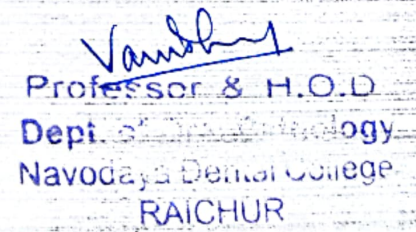 Professor & H.O.D
Dept. of
Navodaya Dental College
RAICHUR